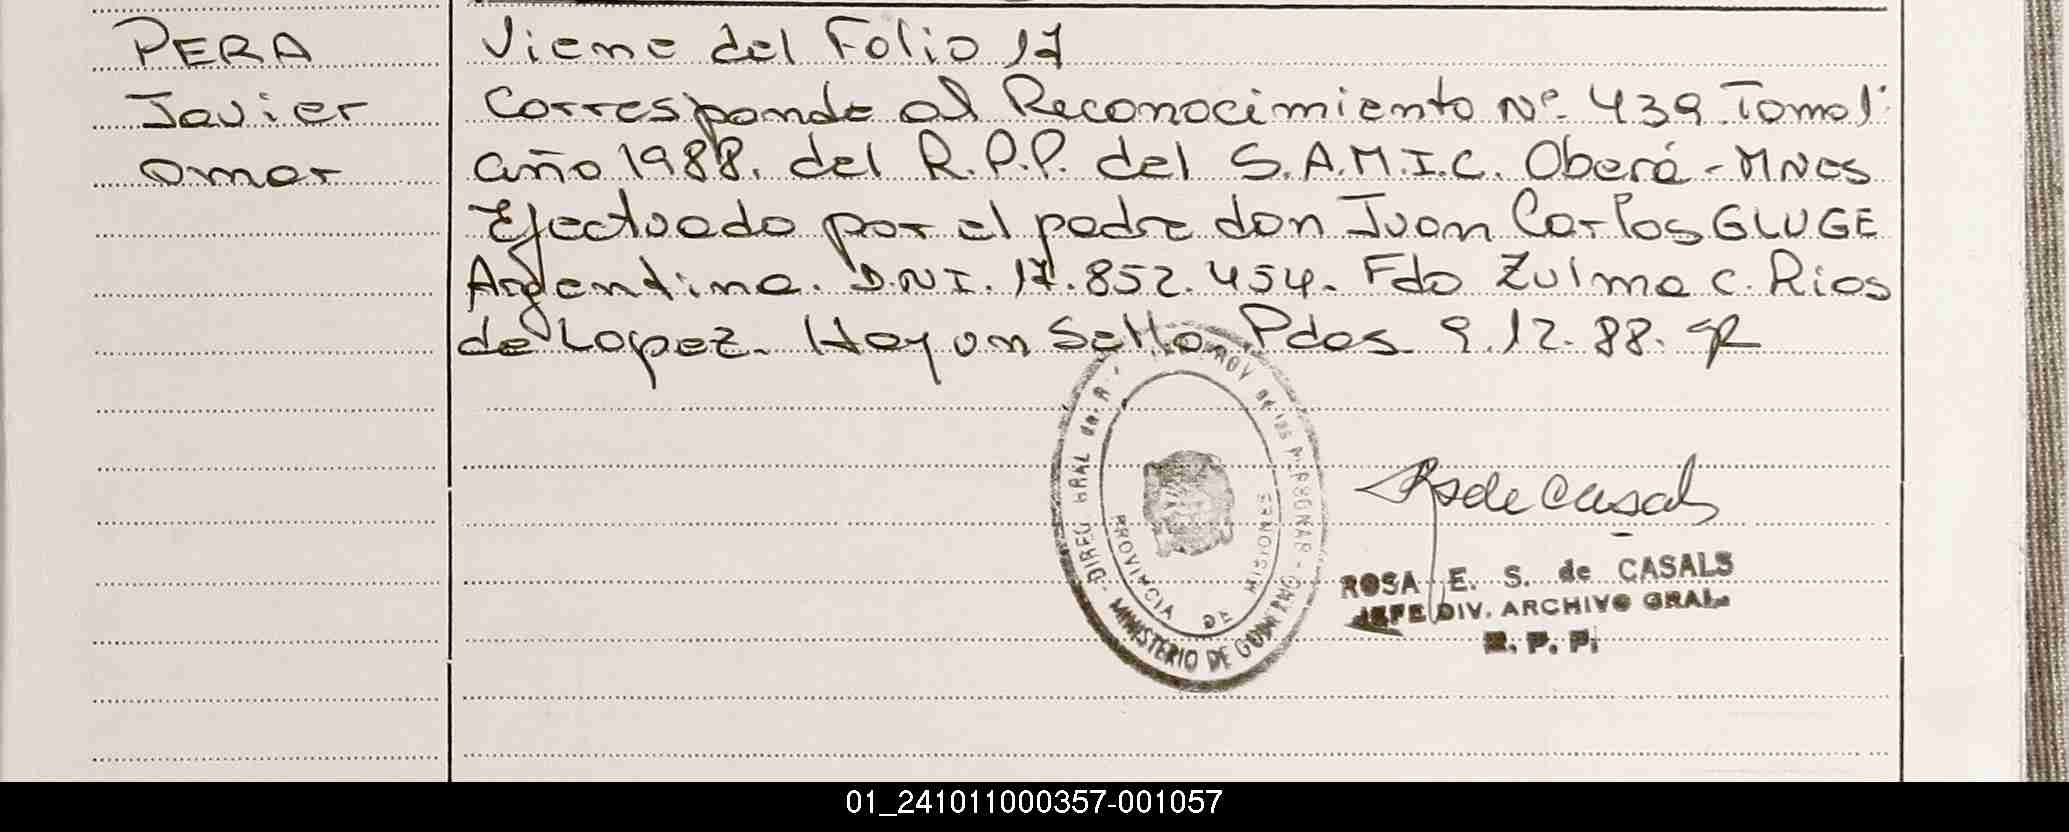 PERA
Javier
Omar
Viene del Folio 17
Corresponde al Reconocimiento Nº 439 Tomo 1º
año 1988. del R.P.P. del S.A.M.I.C. Oberá - MNES
Efectuado por el padre don Juan Carlos GLUGE
Argentino. D.N.I. 17.852.454. Fdo Zulma C. Rios
de Lopez. Hay un Sello Pdas 9.12.88.
DIREC GRAL de PROV de las PERSONAS
PROVINCIA DE MISIONES
MINISTERIO DE GOBIERNO
R S de Casals
ROSA E. S. de CASALS
JEFE DIV. ARCHIVO GRAL.
R. P. P.
01_241011000357-001057